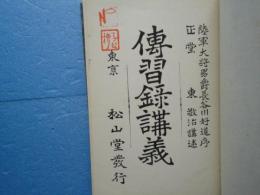 陸軍大將男爵長谷川好道序
正堂 東敬治講述
傳習錄講義
東京 松山堂發行